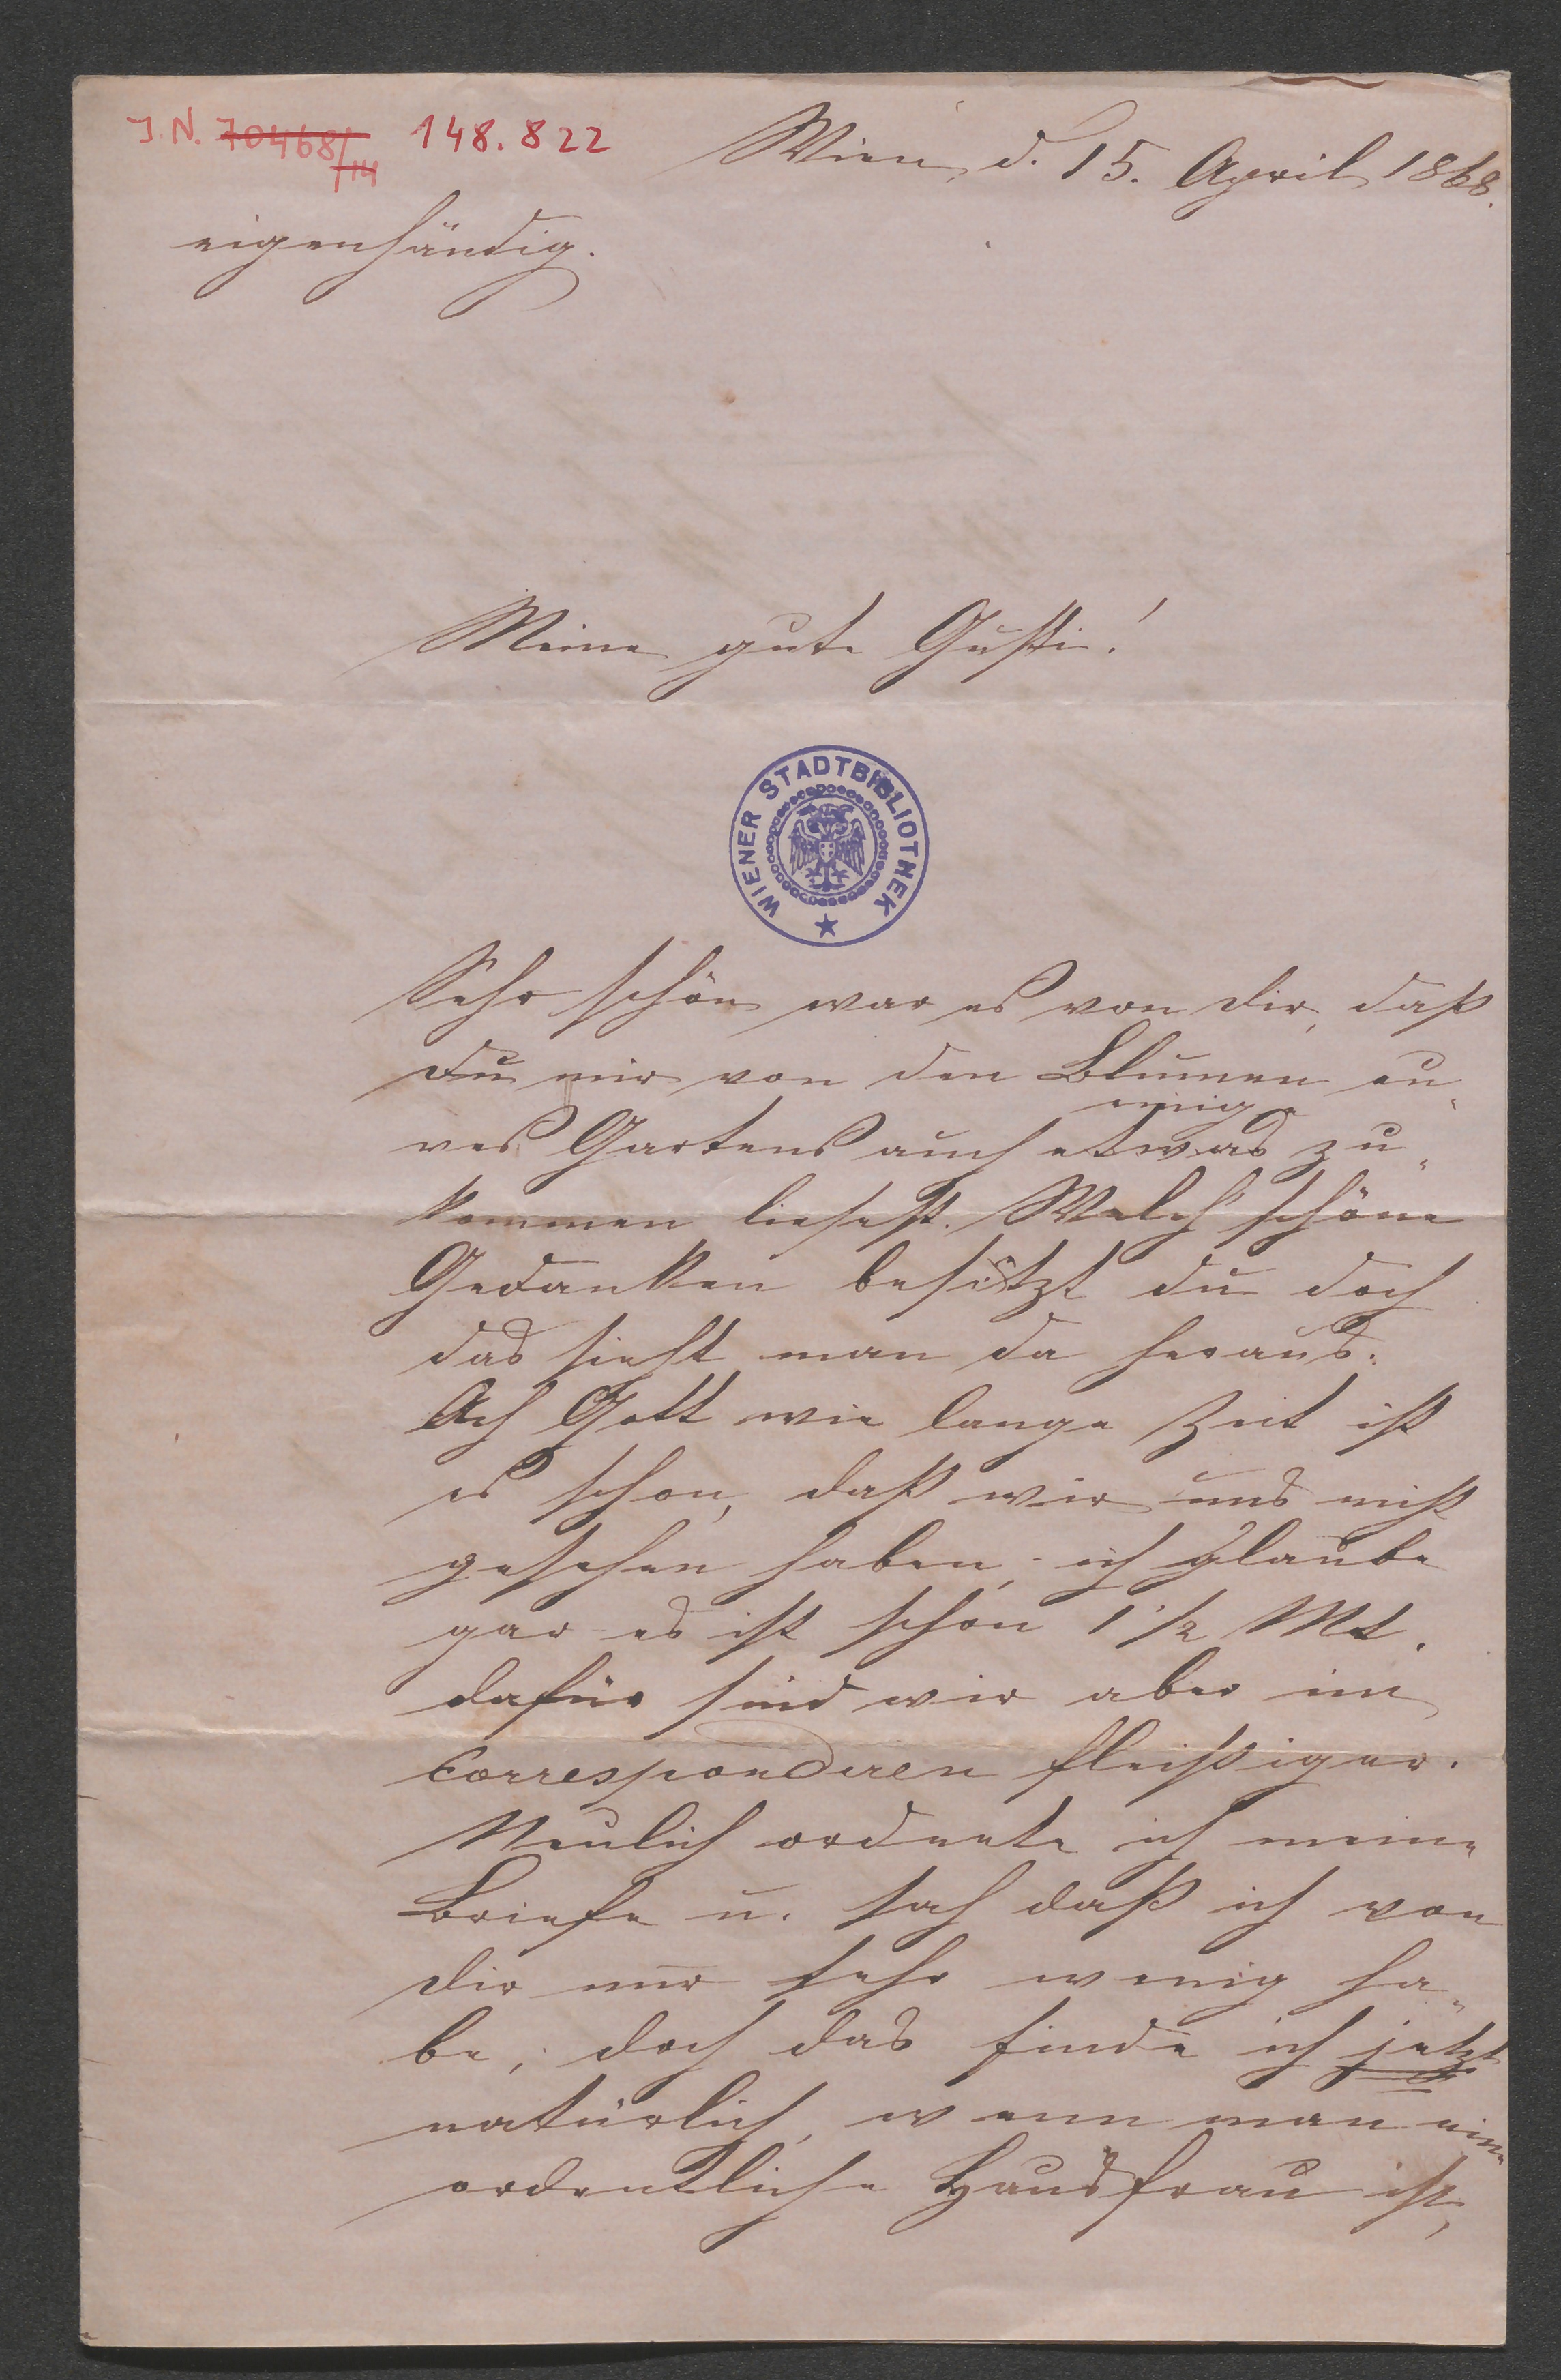 J. N. 70468/14 148.822
Wien, d. 15. April 1868.
eigenhändig.
Meine gute Gusti!
WIENER STADTBIBLIOTHEK
Sehr schön war es von dir, daß
du mir von den Blumen eu-
einige
res Gartens auch etwas zu-
kommen ließest. Welch' schöne
Gedanken besitzt du doch
das sieht man da heraus.
Ach Gott wie lange Zeit ist
es schon, daß wir uns nicht
gesehen haben, ich glaube
gar es ist schon 1 1/2 Mt.
dafür sind wir aber im
correspondiren fleißiger.
Neulich ordnete ich meine
Briefe u. sah daß ich von
dir nur sehr wenig ha-
be, doch das finde ich jetzt
natürlich, wenn man eine
ordentliche Hausfrau ist,